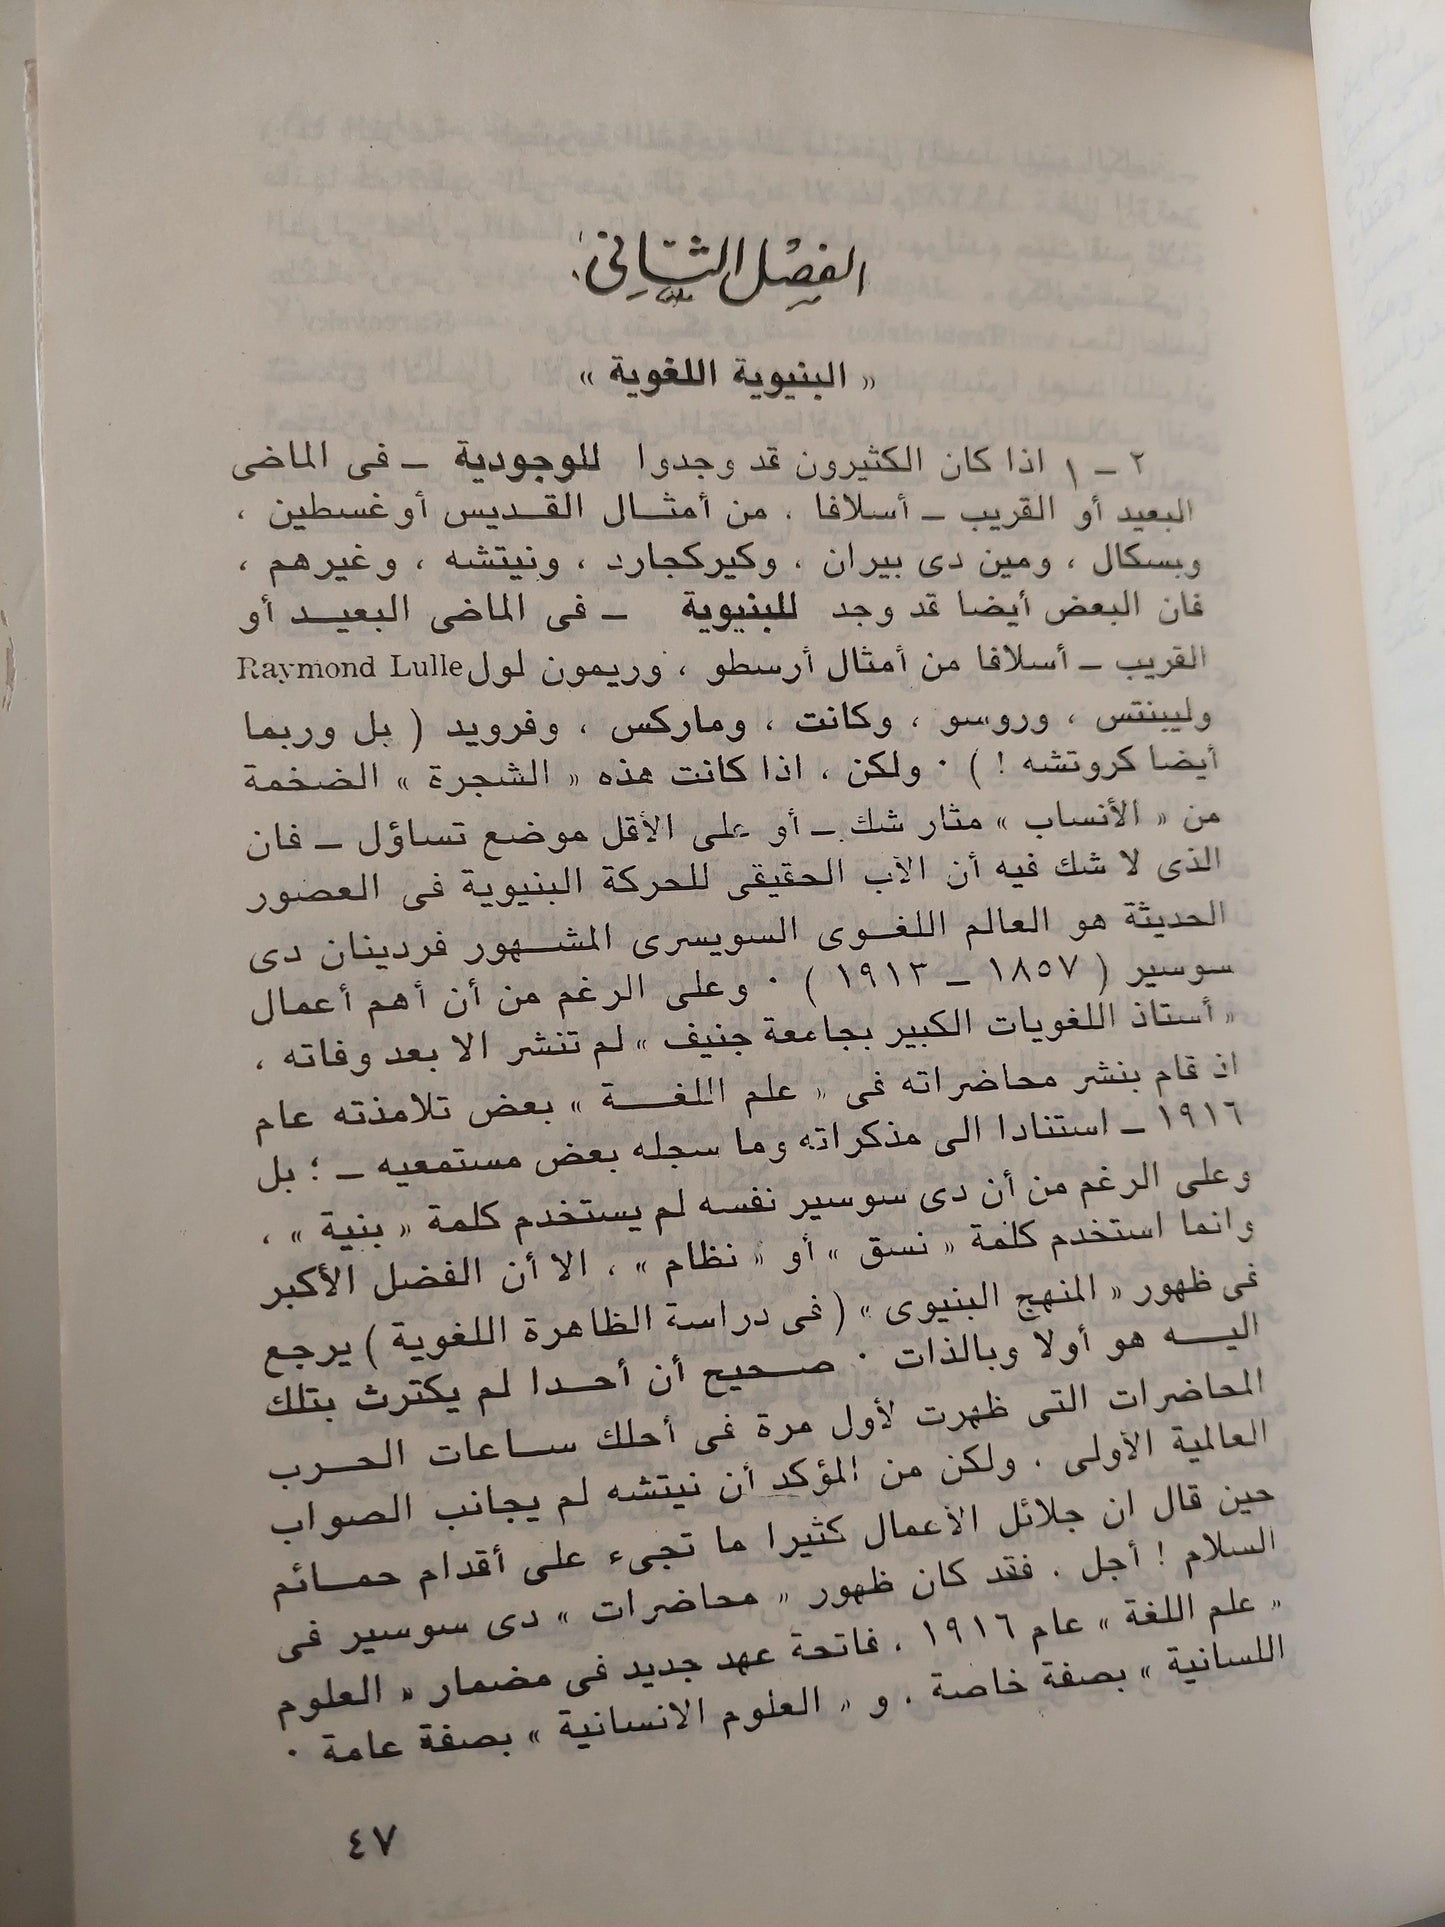 الفصل الثاني
« البنيوية اللغوية »
٢ ــ ١ اذا كان الكثيرون قد وجدوا للوجودية ــ فى الماضى
البعيد أو القريب ــ أسلافا ، من أمثـــال القـــديس أوغسطين ،
وبسكال ، ومين دى بيران ، وكيركجارد ، ونيتشه ، وغيرهم ،
فان البعض أيضا قد وجد للبنيوية ــ فى الماضى البعيـــد أو
القريب ــ أسلافا من أمثال أرسطو ، وريمون لول Raymond Lulle
وليبنتس ، وروسو ، وكانت ، وماركس ، وفرويد ( بل وربما
أيضا كروتشه ! ) ٠ ولكن ، اذا كانت هذه « الشجرة » الضخمة
من « الأنساب » مثار شك ــ أو على الأقل موضع تساؤل ــ فان
الذى لا شك فيه أن الأب الحقيقى للحركة البنيوية فى العصور
الحديثة هو العالم اللغـــوى السويسرى المشـــهور فردينان دى
سوسير ( ١٨٥٧ ــ ١٩١٣ ) ٠ وعلى الرغم من أن أهم أعمال
« أستاذ اللغويات الكبير بجامعة جنيف » لم تنشر الا بعد وفاته ،
اذ قام بنشر محاضراته فى « علم اللغـــة » بعض تلامذته عام
١٩١٦ ــ استنادا الى مذكراته وما سجله بعض مستمعيه ــ ؛ بل
وعلى الرغم من أن دى سوسير نفسه لم يستخدم كلمة « بنية » ،
وانما استخدم كلمة « نسق » أو « نظام » ، الا أن الفضل الأكبر
فى ظهور « المنهج البنيوى » ( فى دراسة الظاهرة اللغوية ) يرجع
اليـــه هو أولا وبالذات ٠ صـــحيح أن أحـــدا لم يكترث بتلك
المحاضرات التى ظهرت لأول مرة فى أحلك ســـاعات الحـــرب
العالمية الأولى ، ولكن من المؤكد أن نيتشه لم يجانب الصواب
حين قال ان جلائل الأعمال كثيرا ما تجىء على أقدام حمـــائم
السلام ! أجل ، فقد كان ظهور « محاضرات » دى سوسير فى
« علم اللغة » عام ١٩١٦ ، فاتحة عهد جديد فى مضمار « العلوم
اللسانية » بصفة خاصة ، و « العلوم الانسانية » بصفة عامة ٠
٤٧